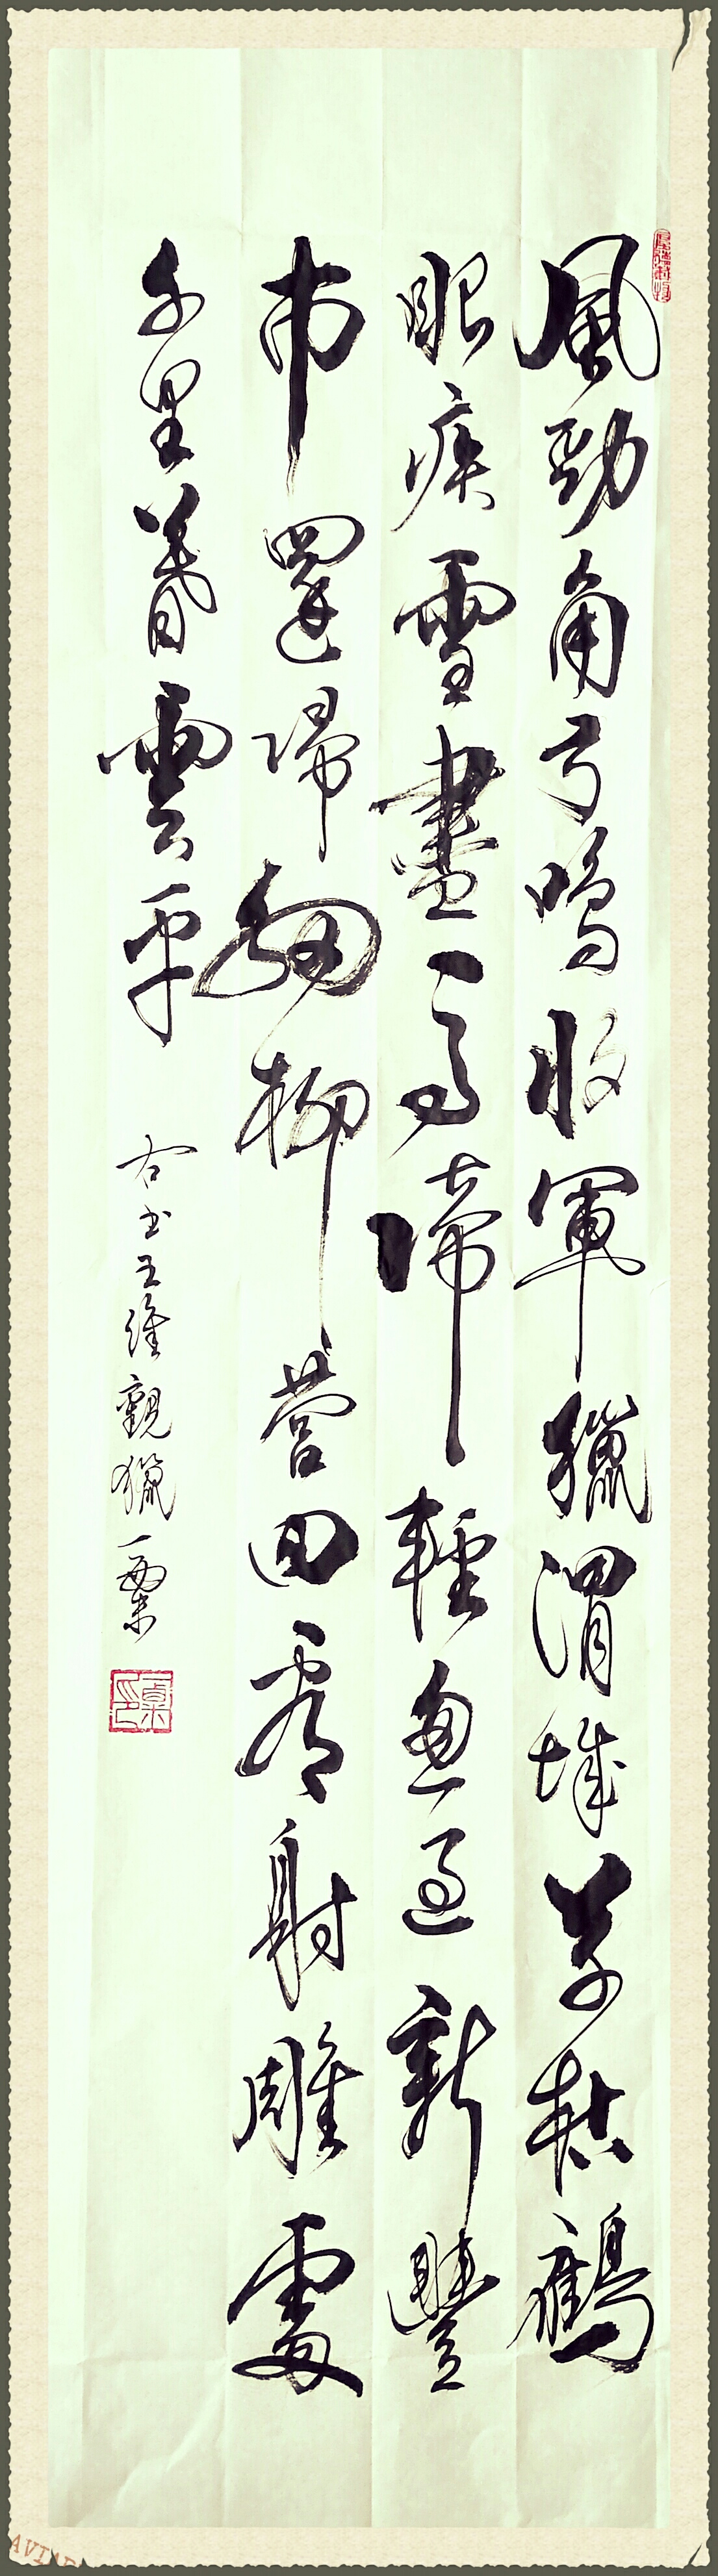 厚德載物
風勁角弓鳴將軍獵渭城草枯鷹
眼疾雪盡馬蹄輕忽過新豐
市還歸細柳營回看射雕處
千里暮雲平
右書王維觀獵一粟